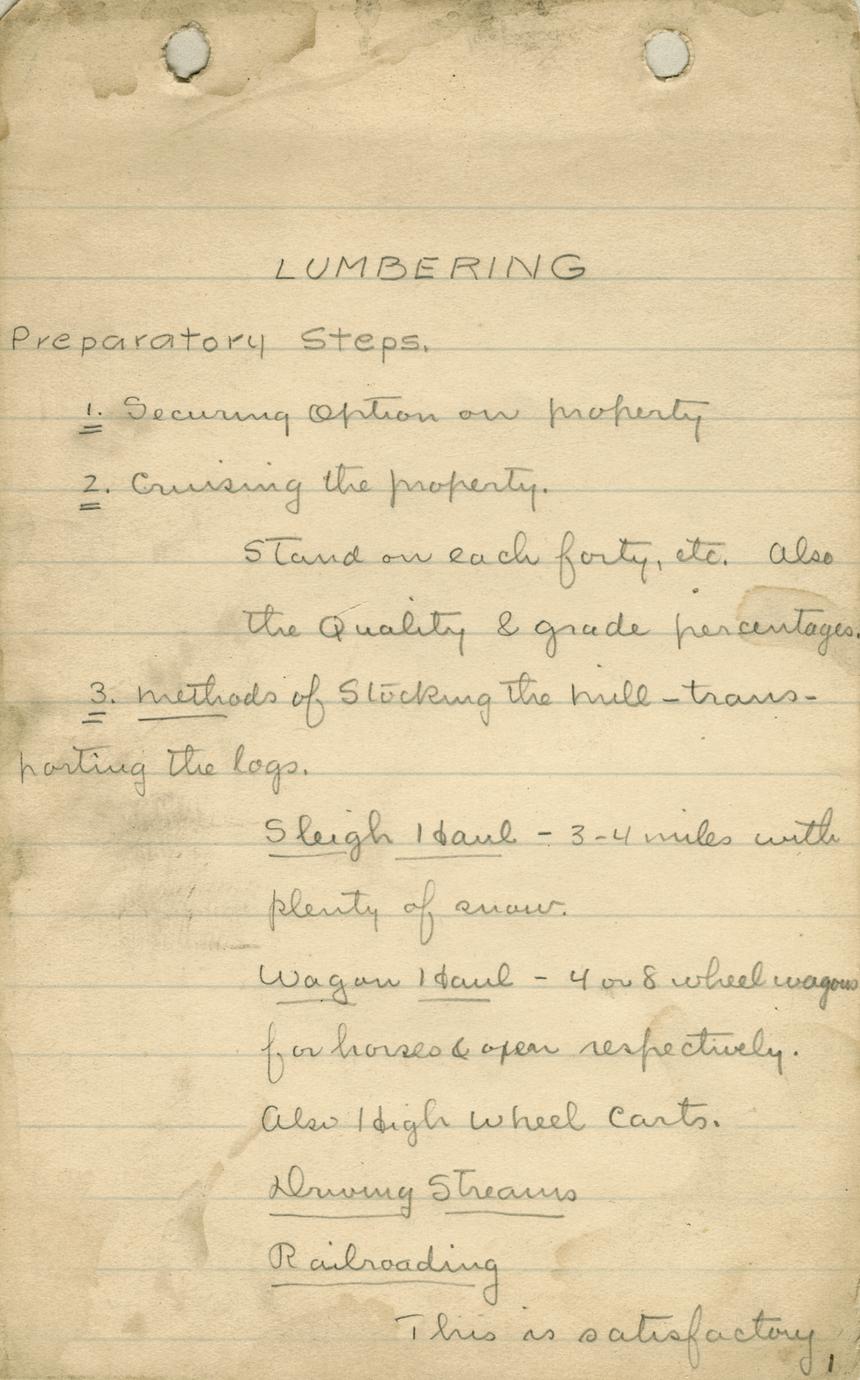 LUMBERING
Preparatory Steps.
1. Securing Option on property
2. Cruising the property.
Stand on each forty, etc. Also
the Quality & grade percentages.
3. methods of Stocking the mill - trans-
porting the logs.
Sleigh Haul - 3-4 miles with
plenty of snow.
Wagon Haul - 4 or 8 wheel wagons
for horses & oxen respectively.
Also High Wheel Carts.
Driving Streams
Railroading
This is satisfactory
1